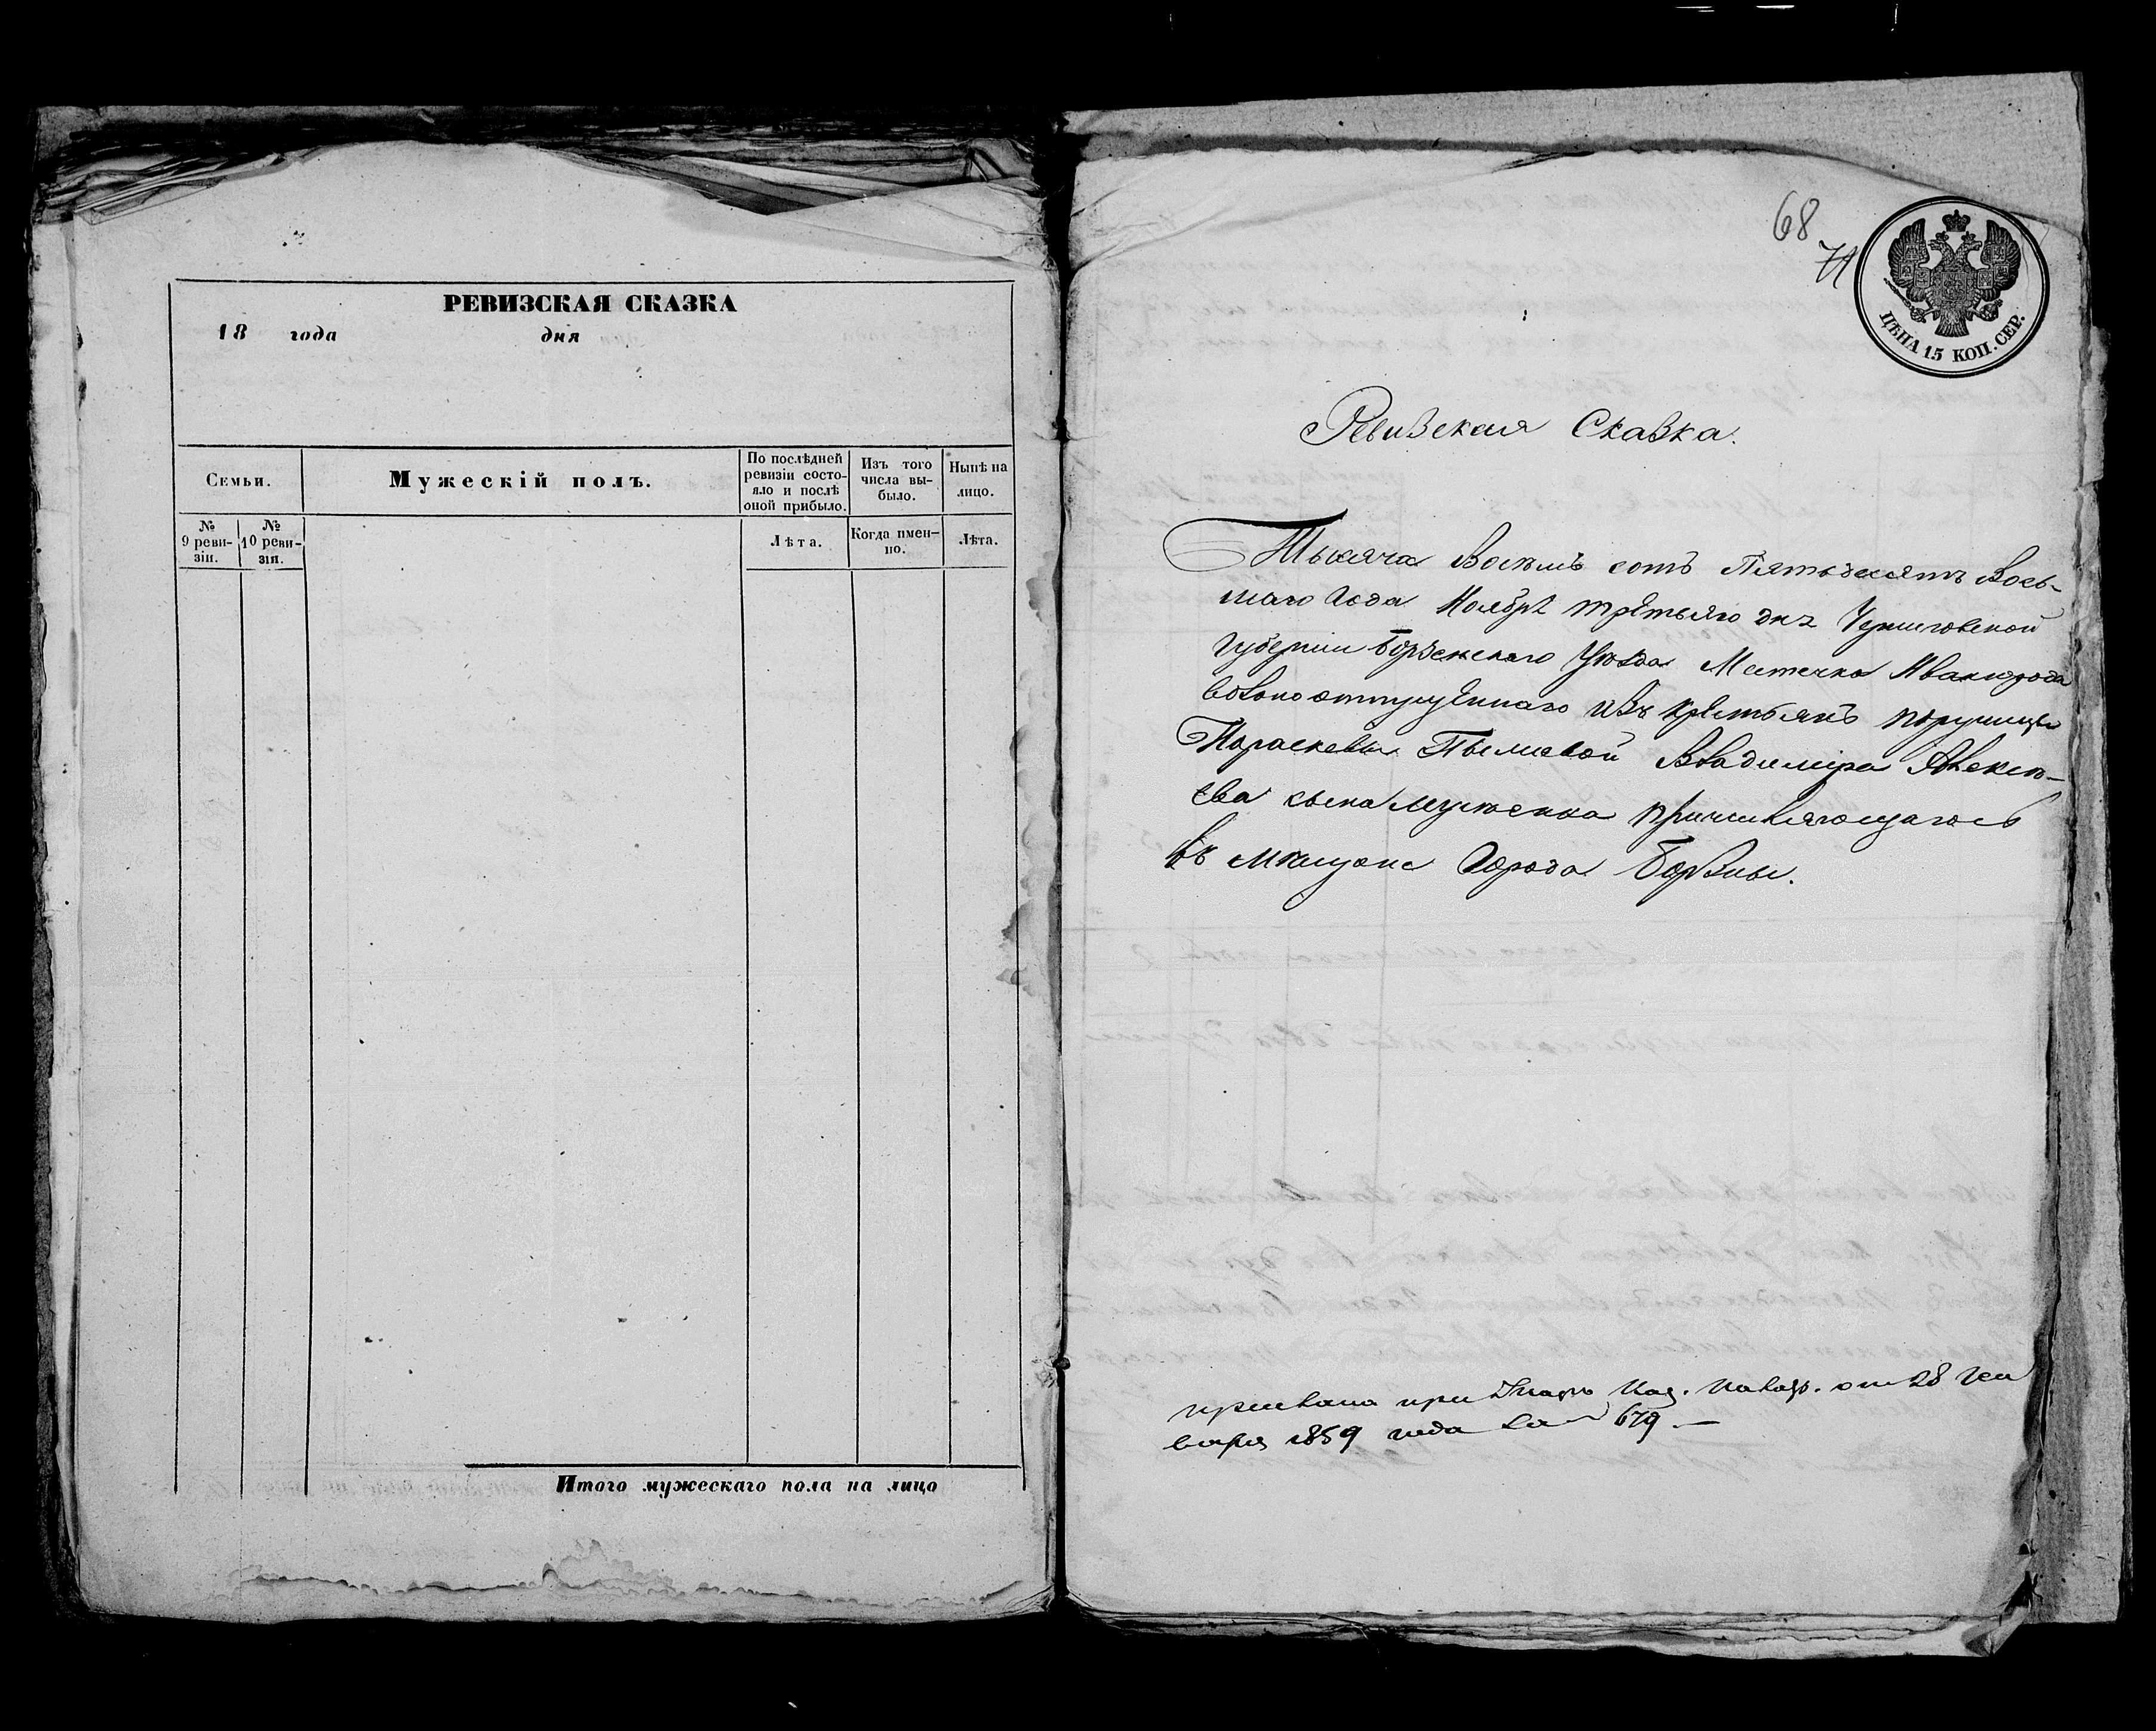 РЕВИЗСКАЯ СКАЗКА
18 года дня
Семьи.
Мужескій полъ.
По послѣдней
ревизіи состо-
яло и послѣ
оной прибыло.
Изъ того
числа вы-
было.
Нынѣ на
лицо.
№
9 реви-
зіи.
№
10 реви-
зія.
Лѣта.
Когда имен-
но.
Лѣта.
Итого мужескаго пола на лицо
68
71
ЦѢНА 15 КОП. СЕР.
Ревизская Сказка.
Тысяча восемъ сотъ Пятьдесятъ Вось-
маго Года Ноября третьяго дня Черниговской
Губерніи Борзенскаго Уѣзда Местечка Ивангорода
вольноотпущеннаго изъ крестьянъ
Параскевы Владиміра Алексѣ-
ева сына причисляющагось
въ мѣщане Города Борзны.
прислана при Каз. от 28 Ген
варя 1859 года за 679. —